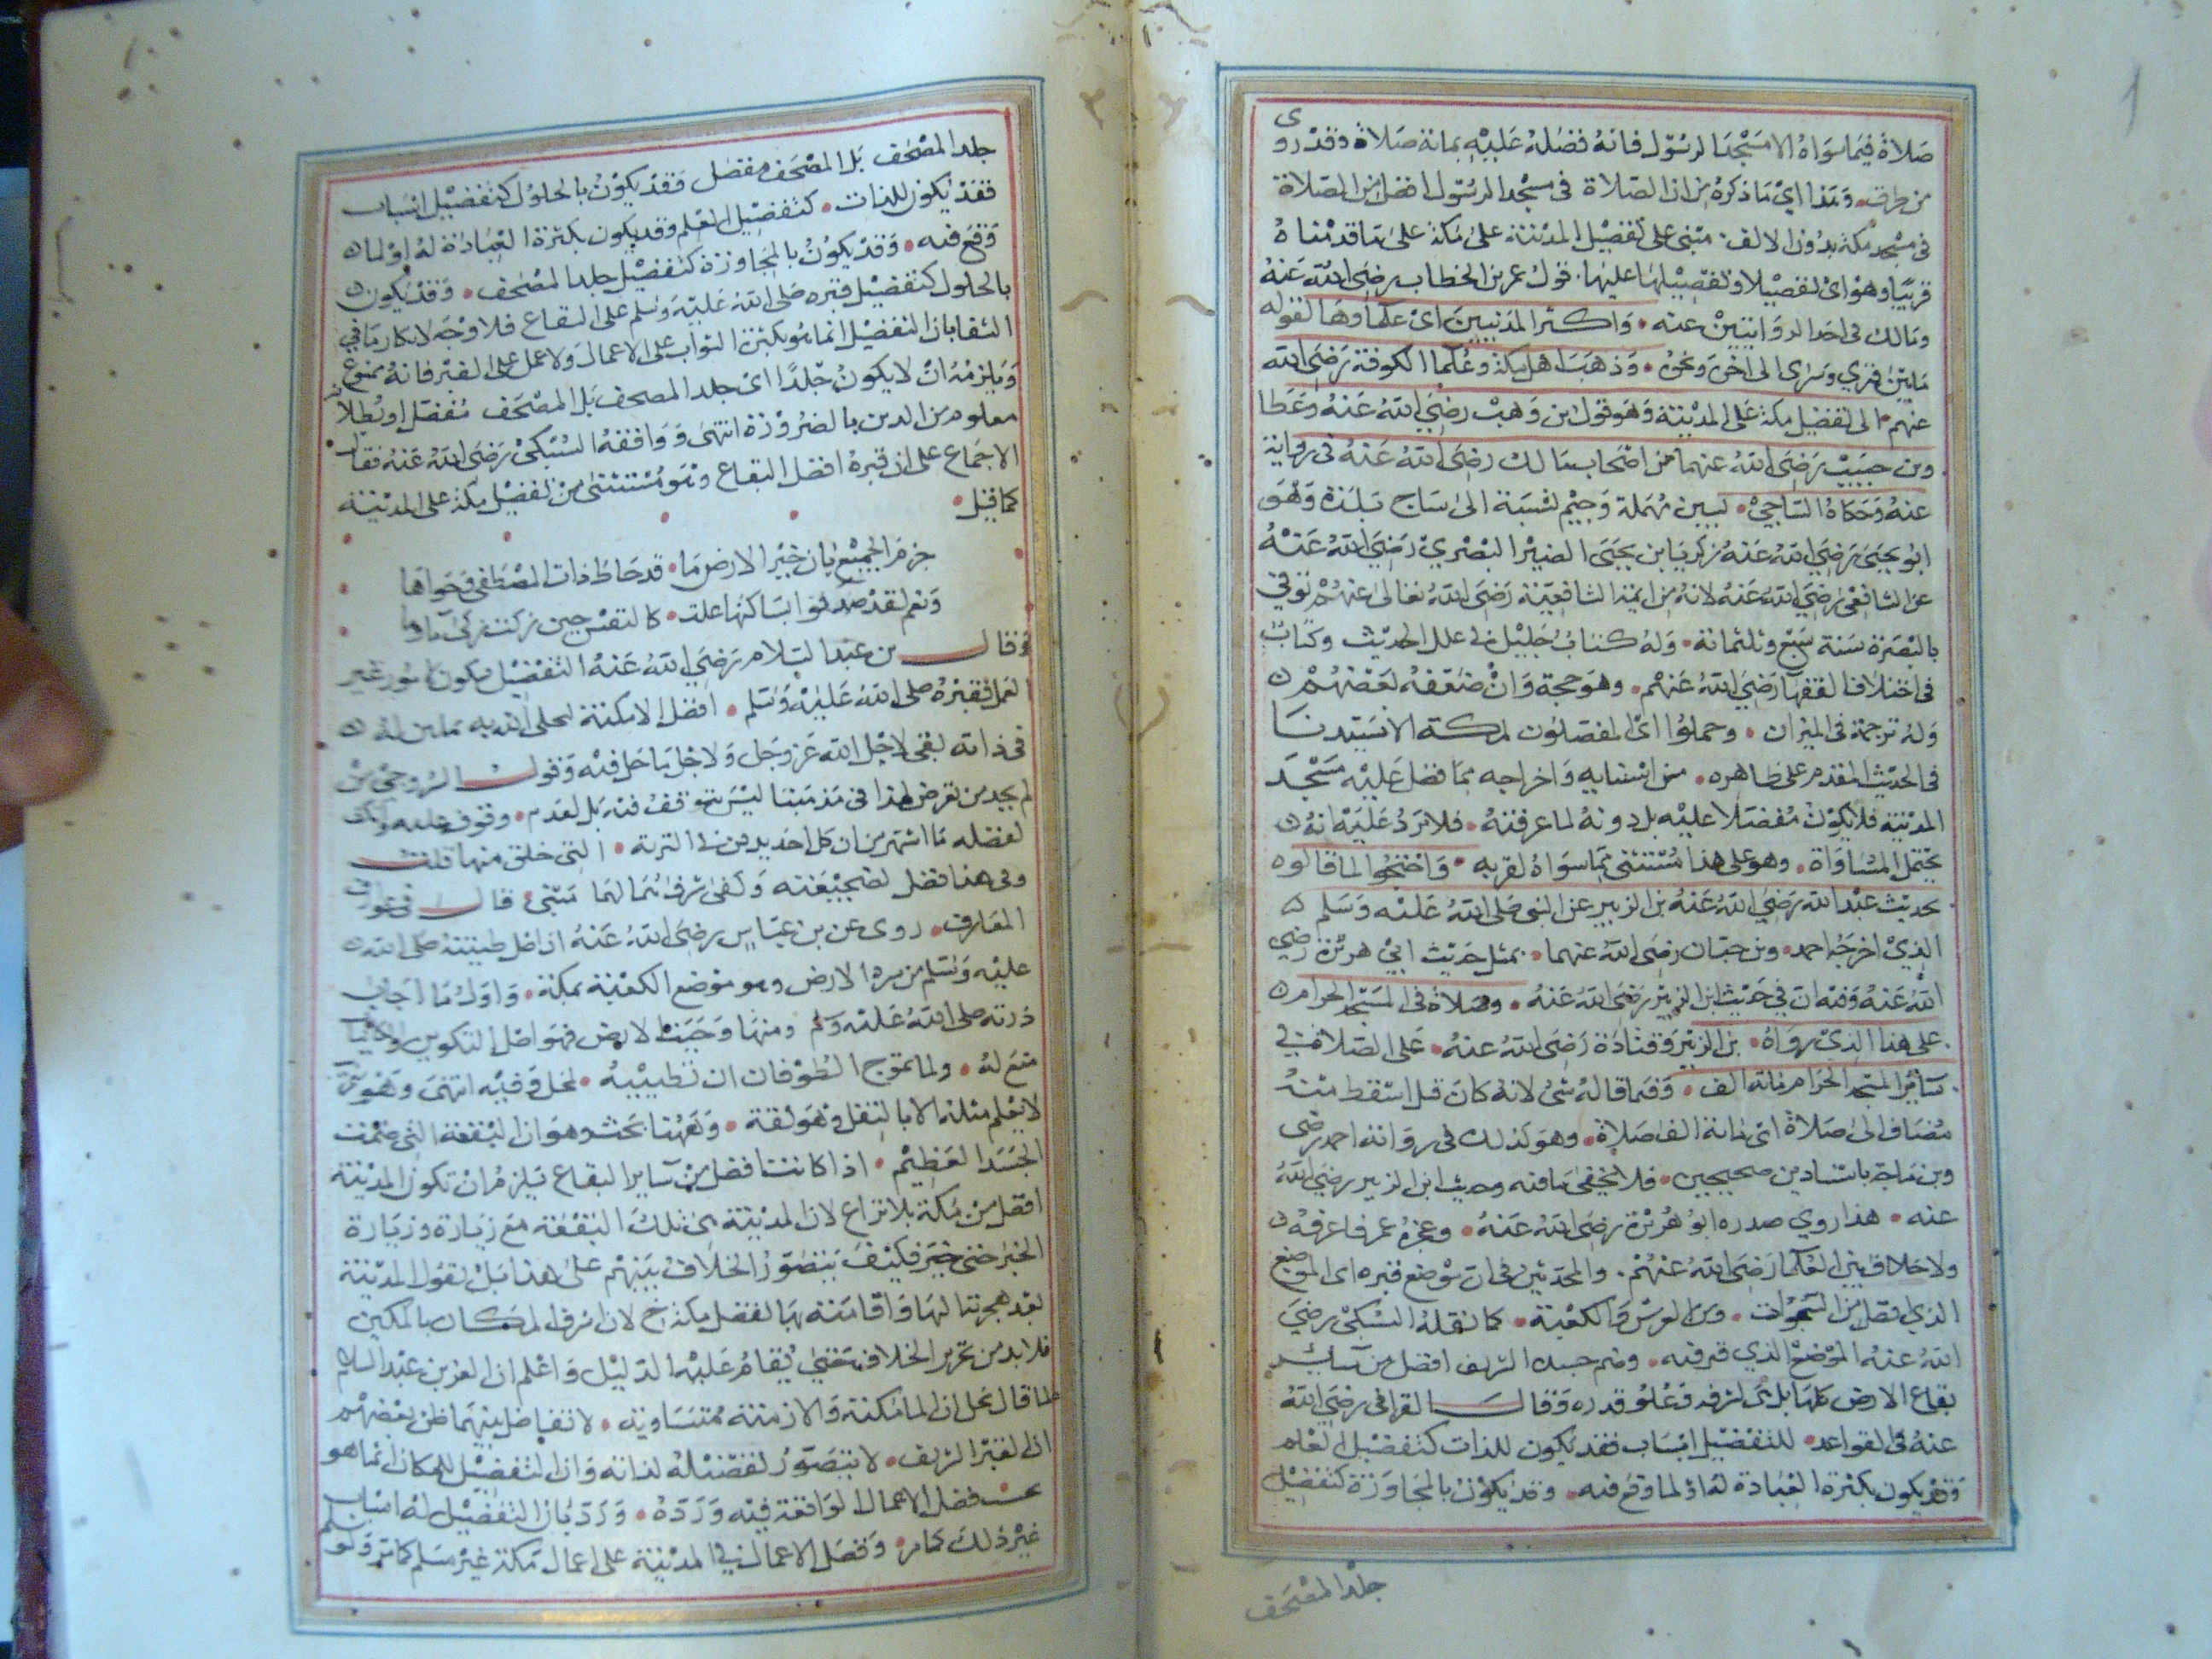 صلاة فيما سواه الا مسجد الرسول فانه فضله عليه بمائة صلاة وقد روى
من طرق وهذا اي ما ذكره من ان الصلاة في مسجد الرسول افضل من الصلاة
في مسجد مكة بدون الالف مبني على تفضيل المدينة على مكة على ما قدمناه
قريبا وهو اي تفضيلا وتفضيلها عليها قول عمر بن الخطاب رضي الله عنه
ومالك في احد الروايتين عنه واكثر المدنيين اي علماؤها لقوله
ما بين قبري ومنبري الى اخره ونحوه وذهب اهل مكة وعلماء الكوفة رضي الله
عنهم الى تفضيل مكة على المدينة وهو قول بن وهب رضي الله عنه وعطا
وبن حبيب رضي الله عنهما من اصحاب مالك رضي الله عنه في رواية
عنه وحكاه الساجي بسين مهملة وجيم نسبة الى ساج بلدة وهو
ابو يحيى رضي الله عنه زكريا بن يحيى الضبي البصري رضي الله عنه
عن الشافعي رضي الله عنه لانه من ايمة الشافعية رضي الله تعالى عنهم توفي
بالبصرة سنة سبع وثلثمائة وله كتاب جليل في علل الحديث وكتاب
في اختلاف الفقها رضي الله عنهم وهو حجة وان ضعفه بعضهم
وله ترجمة في الميزان وحملوا اي المفضلون لمكة الاستثنا
في الحديث المقدم على ظاهره من استثنايه واخراجه مما فضل عليه مسجد
المدينة فلا يكون مفضلا عليه بل دونه لما عرفته فلا يرد عليه انه
يحتمل المساواة وهو على هذا مستثنى مما سواه لقربه واحتجوا لما قالوه
بحديث عبد الله رضي الله عنه بن الزبير عن النبي صلى الله عليه وسلم
الذي اخرجه احمد وبن حبان رضي الله عنهما بمثل حديث ابي هريرة رضي
الله عنه وفيه اي في حديث ابن الزبير رضي الله عنه وصلاة في المسجد الحرام
على هذا الذي رواه بن الزبير وقتادة رضي الله عنه على الصلاة في
ساير المسجد الحرام مائة الف وفيما قاله شي لانه كان قبل اسقط منه
مضاف الى صلاة اي مائة الف صلاة وهو كذلك في رواية احمد رضي
وبن ماجة باسنادين صحيحين فلا يخفى ما فيه وحديث ابن الزبير رضي الله
عنه هذا روي صدره ابو هريرة رضي الله عنه وعجزه عمر فاعرفه
ولا خلاف بين العلما رضي الله عنهم والمحدثين في ان موضع قبره اي الموضع
الذي افضل من السموات ومن العرش والكعبة كما نقله السبكي رضي
الله عنه الموضع الذي قبر فيه وضم جسده الشريف افضل من ساير
بقاع الارض كلها بل هي لشرفه وعلو قدره وقال القرافي رضي الله
عنه في القواعد للتفضيل اسباب فقد يكون للذات كتفضيل العلم
وقد يكون بكثرة العبادة له او لما وقع فيه وقد يكون بالمجاورة كتفضيل
جلد المصحف
جلد المصحف بل المصحف مفضل وقد يكون بالحلول كتفضيل اسباب
فقد يكون للذات كتفضيل العلم وقد يكون بكثرة العبادة له او لما
وقع فيه وقد يكون بالمجاورة كتفضيل جلد المصحف وقد يكون
بالحلول كتفضيل قبره صلى الله عليه وسلم على البقاع فلا وجه لانكار ما في
البقا بان التفضيل انما هو بكثرة الثواب على الاعمال ولا عمل على القبر فانه ممنوع
ويلزمه ان لا يكون جلدا اي جلد المصحف بل المصحف مفضل او بطلانه
معلوم من الدين بالضرورة انتهى ووافقه السبكي رضي الله عنه فقال
الاجماع على ان قبره افضل البقاع وهو مستثنى من تفضيل مكة على المدينة
كما قيل
جزم الجميع بان خير الارض ما قد حاط ذات المصطفى وحواها
ونعم لقد صدقوا بساكنها علت كالنفس حين زكت زكى مأواها
وقال بن عبد السلام رضي الله عنه التفضيل يكون بامور غير
العمل فقبره صلى الله عليه وسلم افضل الامكنة لتجلى الله به
في ذاته يفي لاجل الله عز وجل ولاجل ما حل فيه وقول
لم يجد من تعرض لهذا في مذهبنا ليس بتوقف فيه بل لعدم وقوف عليه
لفضله ما اشتهر من ان كل احد يدفن في التربة التي خلق منها قلت
وفي هذا فضل لضجيعيه وكفى شرفا بما لهما مبنى قال في عوارف
المعارف روى عن بن عباس رضي الله عنه ان اصل طينته صلى الله
عليه وسلم من سرة الارض وهو موضع الكعبة بمكة واول ما اجاب
ذرته صلى الله عليه وسلم ومنها دحيت الارض فهو اصل التكوين والكاينات
تبع له ولما تموج الطوفان
لا يعلم مثله الا بالنقل وهو ثقة وههنا بحث وهو ان البقعة التي ضمنت
الجسد العظيم اذا كانت افضل من ساير البقاع يلزم ان تكون المدينة
افضل من مكة بلا نزاع لان المدينة هي تلك البقعة مع زيادة وزيادة
الخير خير فكيف يتصور الخلاف بينهم على هذا بل يقول المدينة
بعد هجرتنا لها واقامته بها افضل من مكة ح لان شرف المكان بالمكين
فلا بد من تحرير الخلاف حتى يقام عليه الدليل واعلم ان العز بن عبد السلام
لما قال نحل ان الامكنة والازمنة متساوية لا تفاضل بينهما ظن بعضهم
ان القبر الشريف لا يتصور تفضيله لذاته وان التفضيل للمكان انما هو
بحسب فضل الاعمال الواقعة فيه ورده ورد بان التفضيل له اسباب
غير ذلك كما مر وفضل الاعمال في المدينة على اعمال مكة غير مسلم كما مر ولو سلم